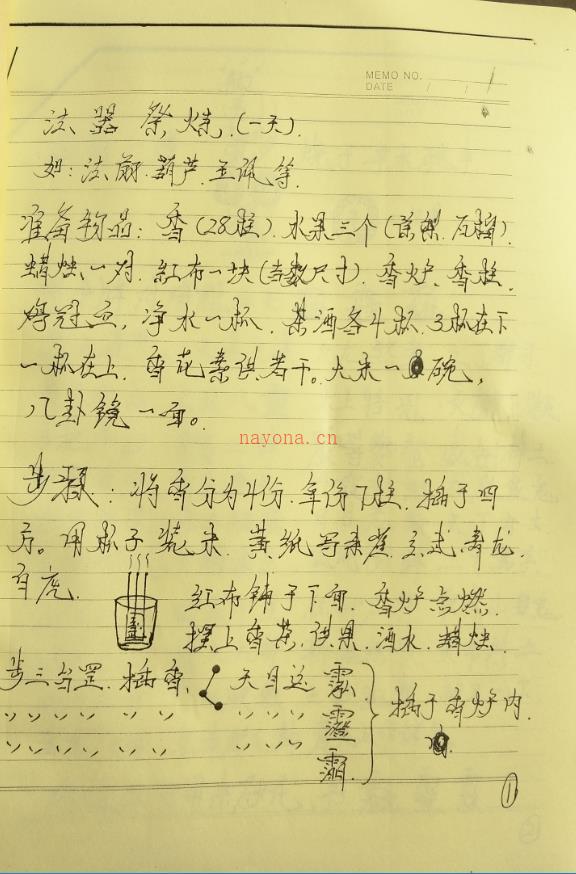 MEMO NO.
DATE / /
1
法器祭炼(一天).
如:法剑.葫芦.玉佩等.
准备物品:香(28柱).水果三个(
蜡烛一对.红布一块(当数尺寸).香炉.香柱.
净水一杯.茶酒各4杯.3杯在下
一杯在上.香花素供若干。大米一碗,
八卦镜一面。
步骤:将香分为4份.每份7柱.插于四
方。用杯子装米.黄纸写朱雀.玄武青龙.
白虎.
红布铺于下面.香炉点燃.
摆上香茶.供果.酒水.蜡烛.
步三台罡.插香.天目运
插于香炉内.
nayona.cn
①